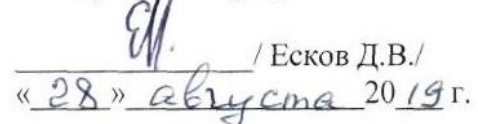 / Есков Д.В./
« 28 » августа 2019 г.